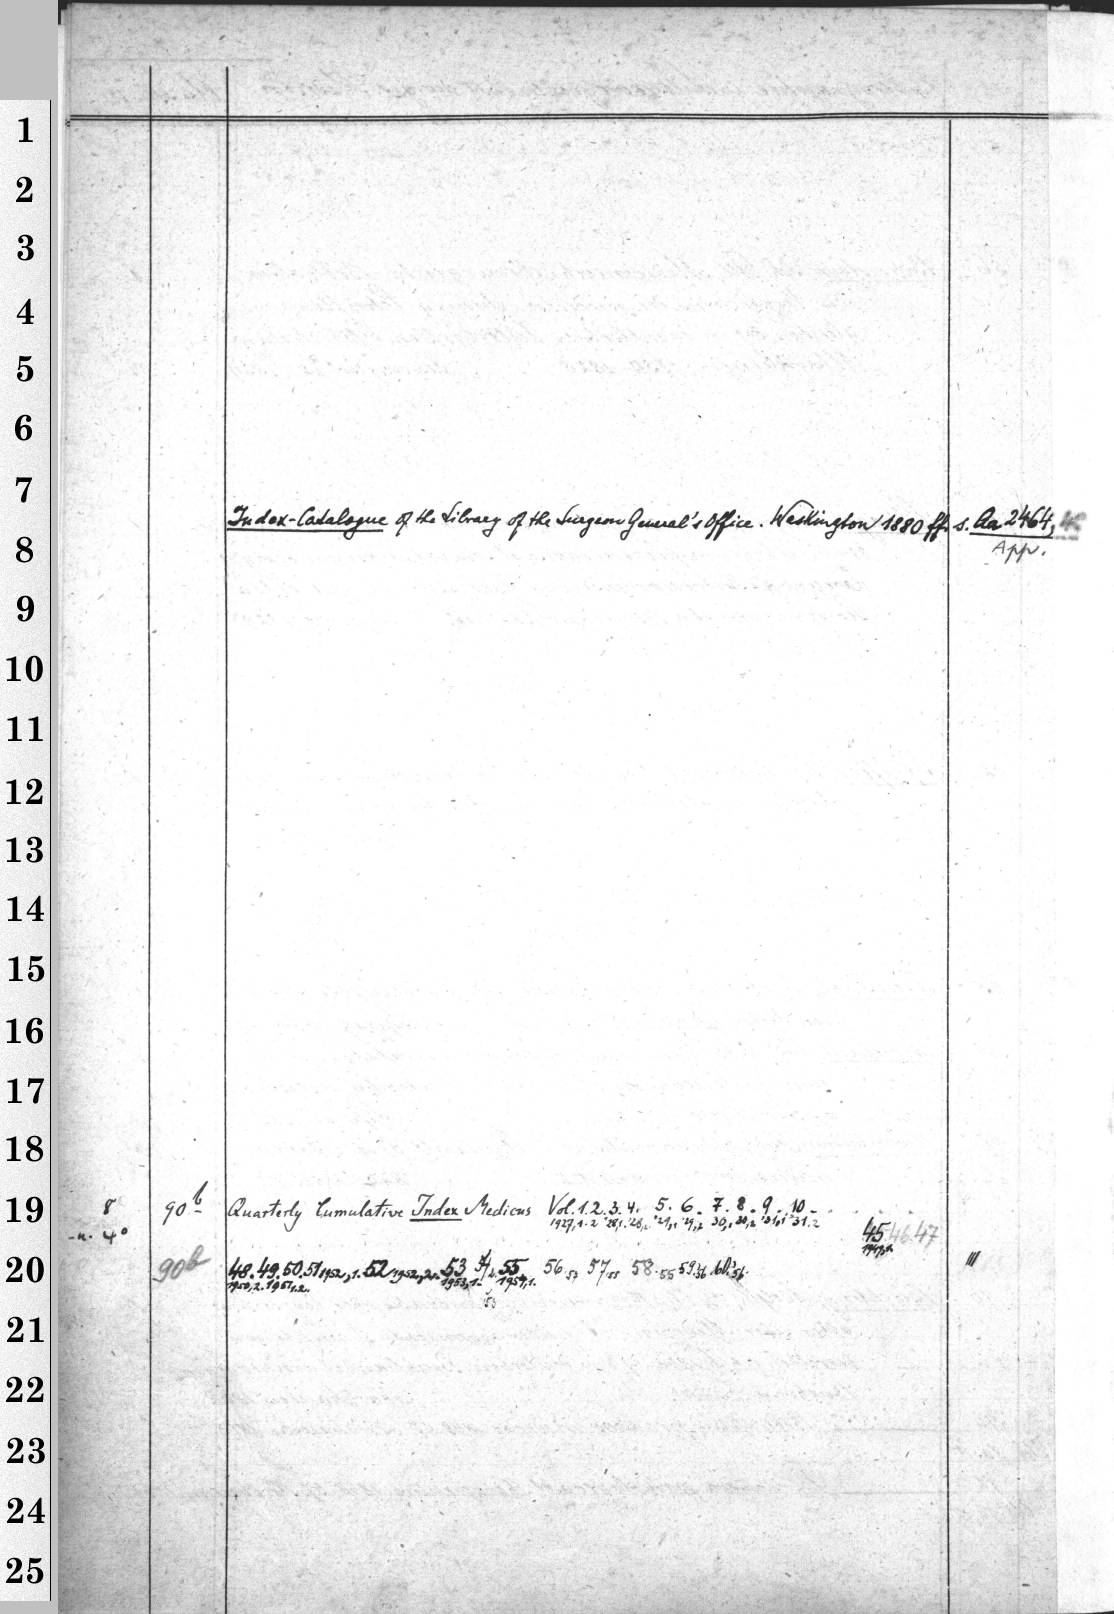 1
2
3
4
5
6
7
Index-Catalogue of the Library of the Surgeon General's Office. Washington 1880 ff. s. Aa 2464,
8
App.
9
10
11
12
13
14
15
16
17
18
19
8 90b Quarterly Cumulative Index Medicus Vol. 1. 2. 3. 4. 5. 6. 7. 8. 9. 10
1927,1.2 28,1. 28,2. 29,1 29,2 30,1 30,2 31,1 31.2
u. 4° 45 46 47
20
90b 48. 49. 50. 51 1952,1. 52 1952,2. 53 54 55 56. 53 57. 55 58. 55 59. 56 60. 56
1950,2. 1951 1.2. 1953,1. 1954,1.
53
21
22
23
24
25